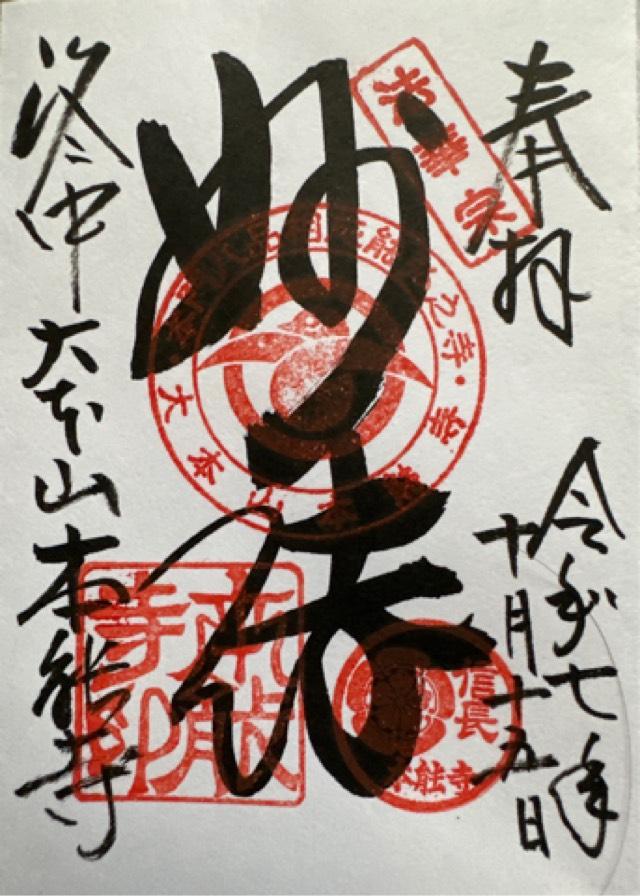 奉拝
法華宗
令和七年
十月十五日
妙法
大本山
信長
本能寺
本能寺印
洛中 大本山本能寺